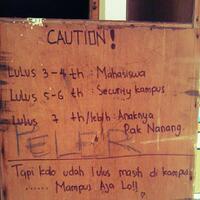 CAUTION!
Lulus 3-4 th : Mahasiswa
Lulus 5-6 th : Security kampus
Lulus 7 th/lebih : Anaknya
Pak Nanang.
PELER
Tapi kalo udah lulus masih di kampus
...... Mampus Aja Lo!!